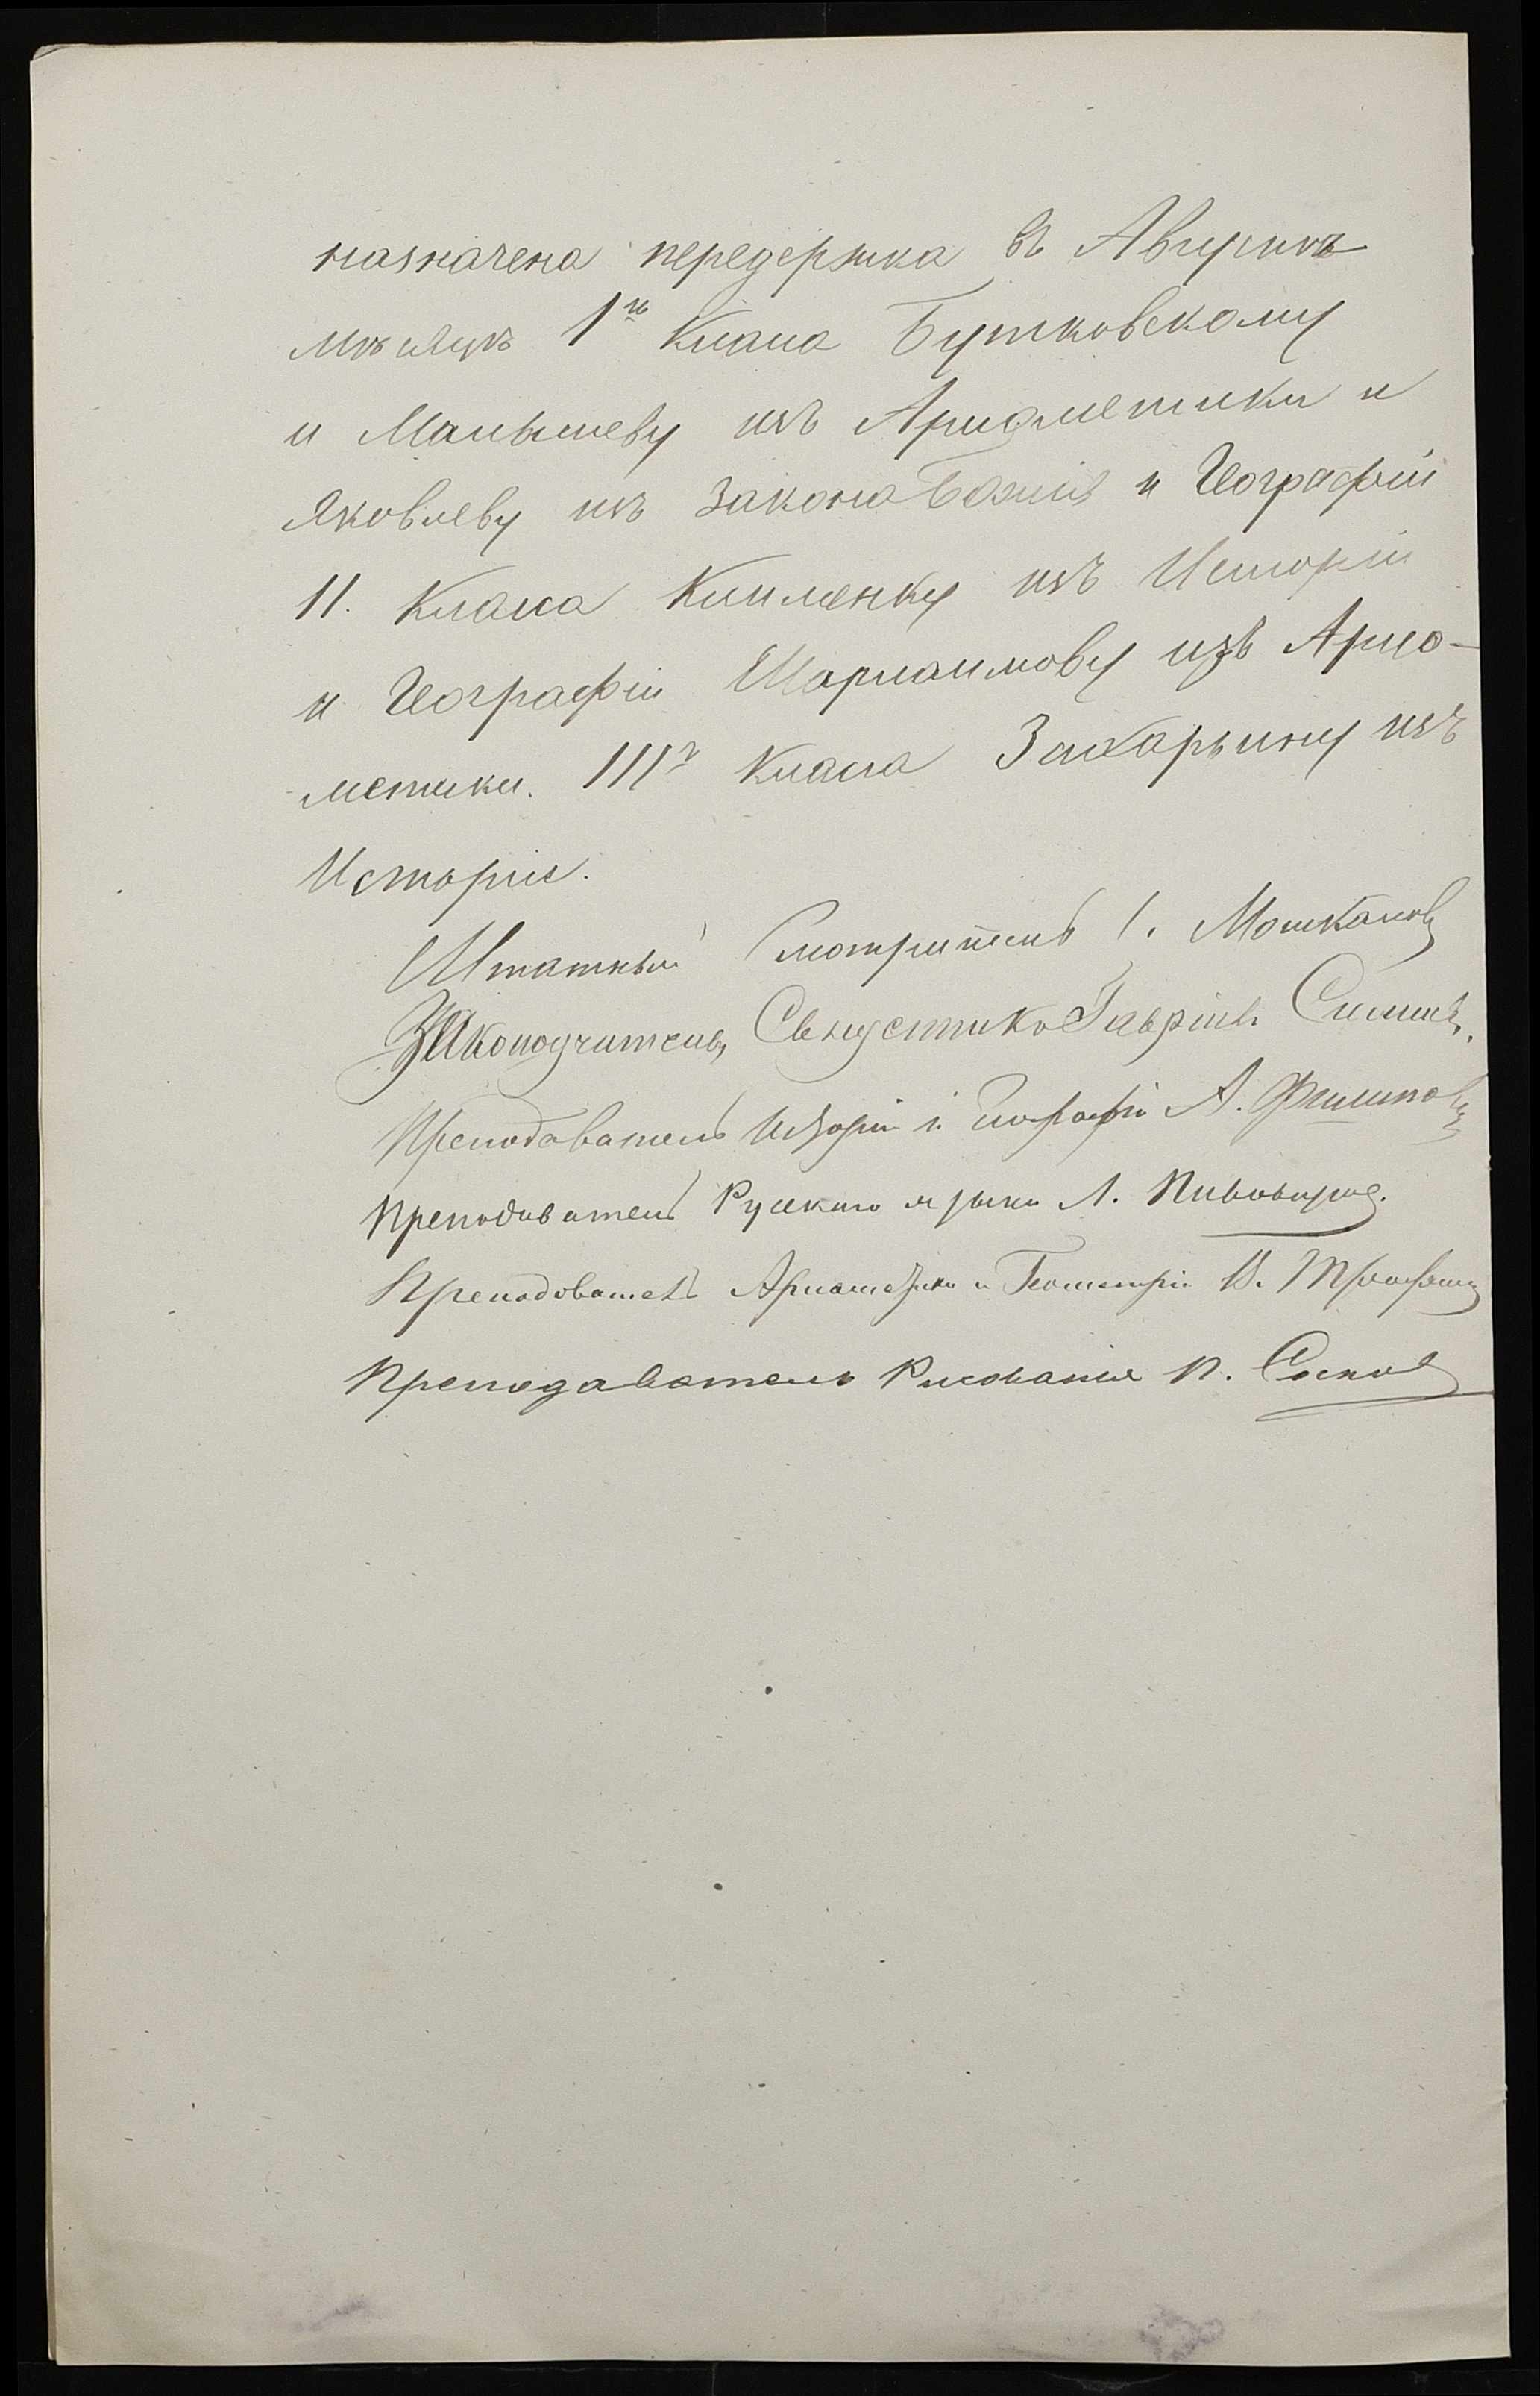 назначена передержка въ Августѣ
мѣсяцѣ 1го Класа Бутковскому
и Малышеву изъ Ариѳметики и
Яковлеву изъ Закона Божія и Географіи
II. Класа Клименку изъ Исторіи
и Географіи Шарлаимову изъ Ариѳ-
метики. IIIго Класа Захарьину изъ
Исторіи.
Штатный Смотритель І. Мошкановъ
Законоучитель, Священникъ Гавріилъ
Преподаватель Исторіи и Географіи А. Филиповъ
Преподаватель Русскаго языка Л.
Преподаватель Ариѳметики и Геометріи В.
Преподаватель Рисованія П.